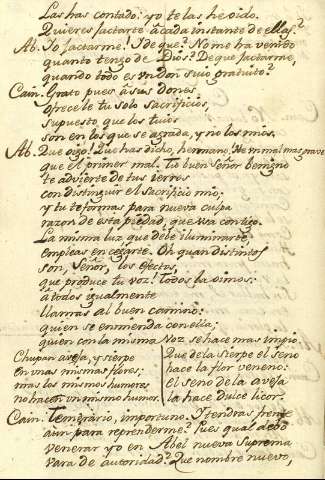 Las has contado: yo te las he oido.
Quieres jactarte a cada instante de ellas?
Ab. Yo jactarme! Y de que? No me ha venido
quanto tengo de Dios? De que jactarme,
quando todo es un don suio gratuito?
Cain. Grato pues á sus dones
ofrecele tu solo sacrificios,
supuesto que los tuios
son en los que se agrada, y no los mios.
Ab. Que oigo! Que has dicho, hermano! He un mal mas grave
que el primer mal. Tu buen Señor benigno
te advierte de tus ierros
con distinguir el sacrificio mio;
y tu te formas para nueva culpa
razon de esta piedad, que usa contigo.
La misma luz que debe iluminarte,
empleas en cegarte. Oh quan distintos
son, Señor, los efectos,
que produce tu voz! Todos la oimos:
á todos igualmente
llamas al buen camino:
quien se enmienda con ella;
quien con la misma voz se hace mas impio.
Chupan aveja, y sierpe
en unas mismas flores;
mas los mismos humores
no hacen un mismo humor.
Que de la sierpe el seno
hace la flor veneno:
el seno de la aveja
la hace dulce licor.
Cain. Temerario, importuno. Y tendras frente
aun para reprenderme? Pues qual debo
venerar yo en Abel nueva suprema
vara de autoridad? Que nombre nuevo,